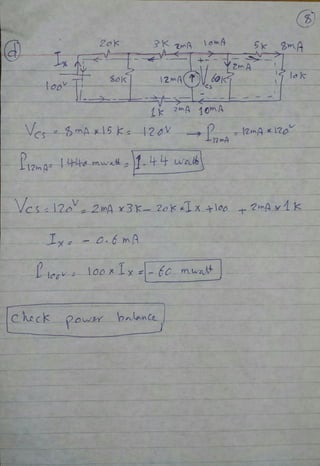 8
d
20K 3K 2mA 10mA 5K 8mA
Ix 2mA
100V 80K 12mA Vcs 60K 10K
1K 2mA 10mA
Vcs = 8mA x 15K = 120V → P12mA = 12mA x 120V
P12mA = 1440 mwatt = 1.44 watt
Vcs = 120V = 2mA x 3K - 20K x Ix + 100 + 2mA x 1K
Ix = - 0.6mA
P100V = 100 x Ix = - 60 mwatt
check power balance